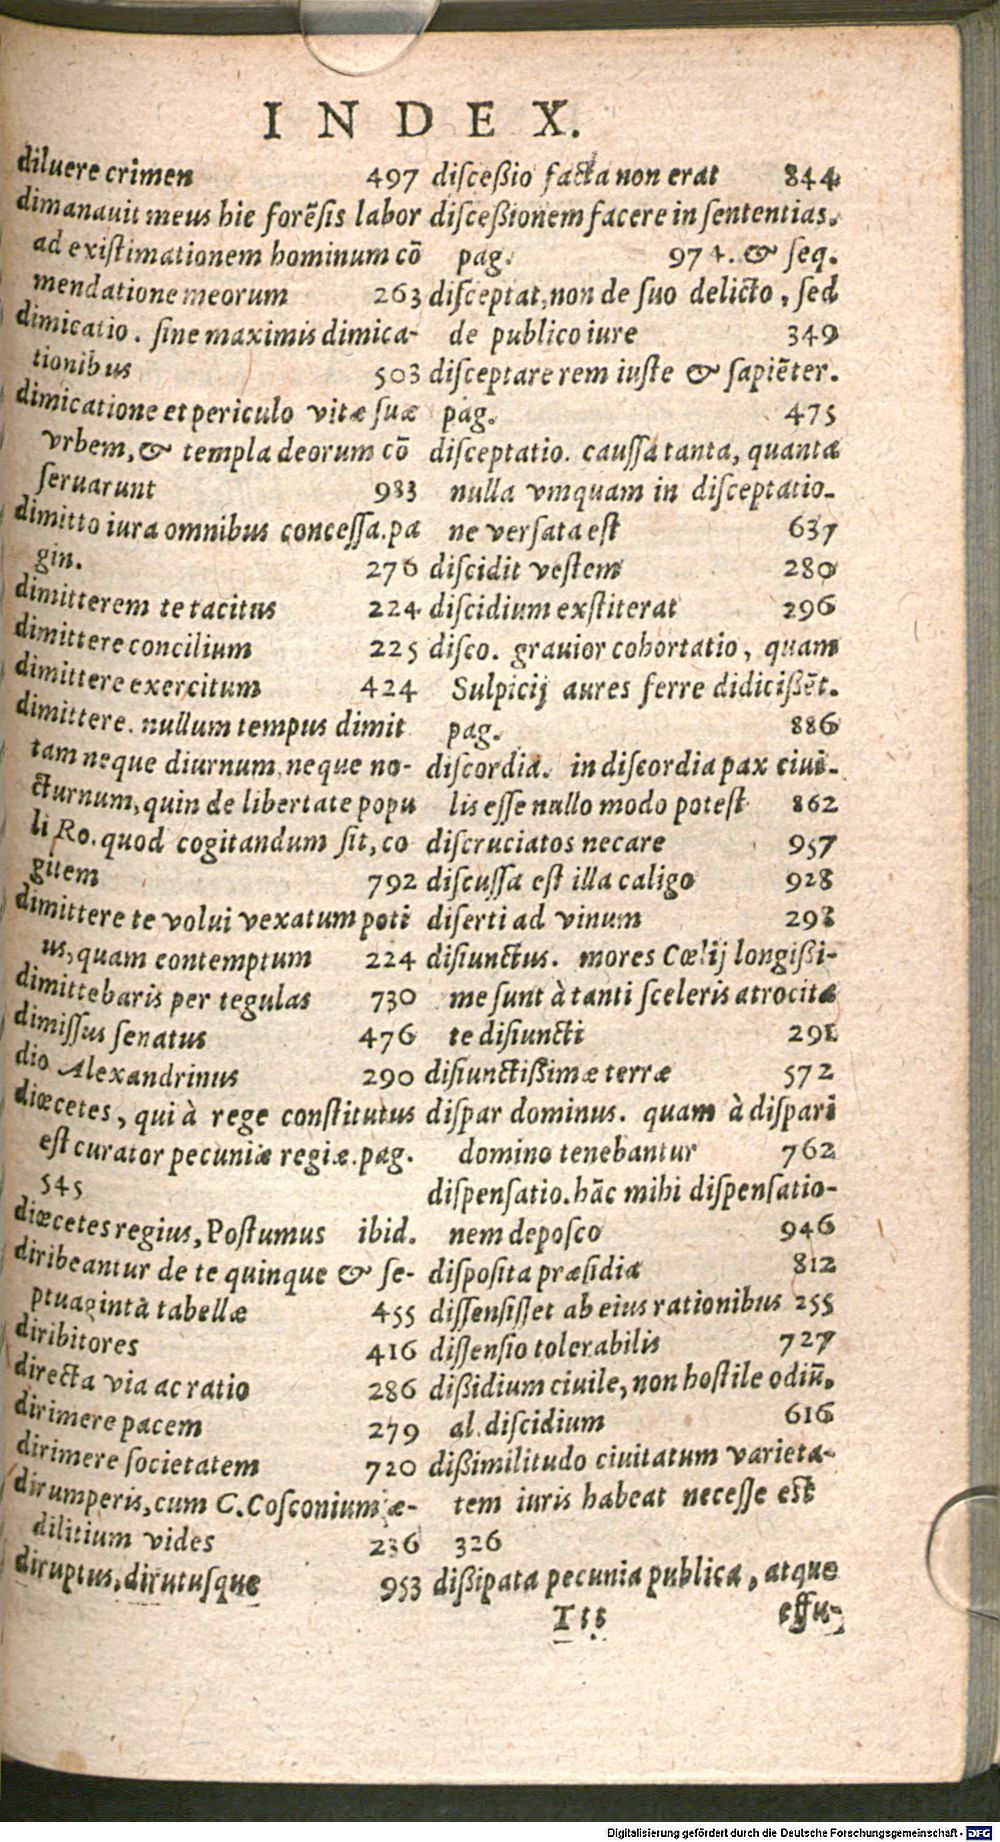 INDEX.
diluere crimen 497
dimanauit meus hic forẽsis labor
ad existimationem hominum cõ
mendatione meorum 263
dimicatio. sine maximis dimica-
tionibus 503
dimicatione et periculo vitæ suæ
vrbem, & templa deorum cõ
seruarunt 983
dimitto iura omnibus concessa. pa
gin. 276
dimitterem te tacitus 224
dimittere concilium 225
dimittere exercitum 424
dimittere. nullum tempus dimit
tam neque diurnum, neque no-
cturnum, quin de libertate popu
li Ro. quod cogitandum sit, co
gitem 792
dimittere te volui vexatum poti
us, quam contemptum 224
dimittebaris per tegulas 730
dimissus senatus 476
dio Alexandrinus 290
diœcetes, qui à rege constitutus
est curator pecuniæ regiæ. pag.
545
diœcetes regius, Postumus ibid.
diribeantur de te quinque & se-
ptuagintà tabellæ 455
diribitores 416
directa via ac ratio 286
dirimere pacem 279
dirimere societatem 720
dirumperis, cum C. Cosconium æ-
dilitium vides 236
diruptus, dirutusque 953
disceßio facta non erat 844
disceßionem facere in sententias.
pag. 974. & seq.
disceptat, non de suo delicto, sed
de publico iure 349
disceptare rem iuste & sapiẽter.
pag. 475
disceptatio. caussa tanta, quanta
nulla vmquam in disceptatio-
ne versata est 637
discidit vestem 280
discidium exstiterat 296
disco. grauior cohortatio, quam
Sulpicij aures ferre didicißẽt.
pag. 886
discordia. in discordia pax ciui-
lis esse nullo modo potest 862
discruciatos necare 957
discussa est illa caligo 928
diserti ad vinum 298
disiunctus. mores Cœlij longißi-
me sunt à tanti sceleris atrocita
te disiuncti 291
disiunctißimæ terræ 572
dispar dominus. quam à dispari
domino tenebantur 762
dispensatio. hãc mihi dispensatio-
nem deposco 946
disposita præsidia 812
dissensisset ab eius rationibus 255
dissensio tolerabilis 727
dißidium ciuile, non hostile odiũ.
al. discidium 616
dißimilitudo ciuitatum varieta-
tem iuris habeat necesse est
326
dißipata pecunia publica, atque
Ttt effu-
Digitalisierung gefördert durch die Deutsche Forschungsgemeinschaft - DFG